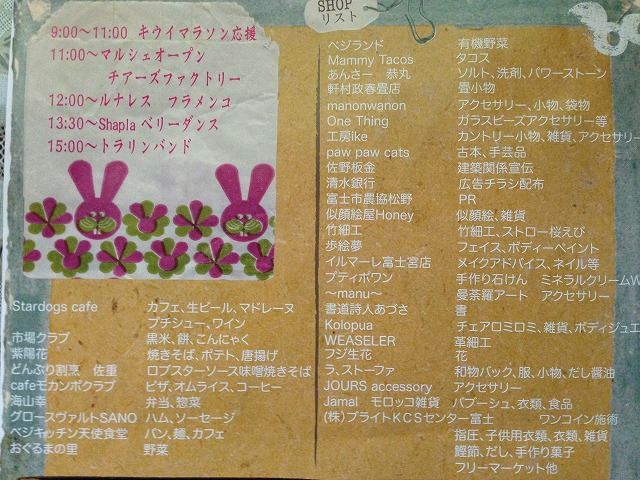 9:00〜11:00 キウイマラソン応援
11:00〜マルシェオープン
チアーズファクトリー
12:00〜ルナレス フラメンコ
13:30〜Shapla ベリーダンス
15:00〜トラリンバンド
Stardogs cafe カフェ、生ビール、マドレーヌ
プチシュー、ワイン
市場クラブ 黒米、餅、こんにゃく
紫陽花 焼きそば、ポテト、唐揚げ
どんぶり割烹 佐重 ロブスターソース味噌焼きそば
cafeモカンボクラブ ピザ、オムライス、コーヒー
海山幸 弁当、惣菜
グロースヴァルトSANO ハム、ソーセージ
ベジキッチン天使食堂 パン、麺、カフェ
おぐるまの里 野菜
SHOP
リスト
ベジランド 有機野菜
Mammy Tacos タコス
あんさー 恭丸 ソルト、洗剤、パワーストーン
軒村政春畳店 畳小物
manonwanon アクセサリー、小物、袋物
One Thing ガラスビーズアクセサリー等
工房ike カントリー小物、雑貨、アクセサリー
paw paw cats 古本、手芸品
佐野板金 建築関係宣伝
清水銀行 広告チラシ配布
富士市農協松野 PR
似顔絵屋Honey 似顔絵、雑貨
竹細工 竹細工、ストロー桜えび
歩絵夢 フェイス、ボディーペイント
イルマーレ富士宮店 メイクアドバイス、ネイル等
プティボワン 手作り石けん ミネラルクリームW
〜manu〜 曼荼羅アート アクセサリー
書道詩人あづさ 書
Kolopua チェアロミロミ、雑貨、ボディジュエ
WEASELER 革細工
フジ生花 花
ラ、ストーファ 和物バック、服、小物、だし醤油
JOURS accessory アクセサリー
Jamal モロッコ雑貨 バブーシュ、衣類、食品
(株)ブライトKCSセンター富士 ワンコイン施術
指圧、子供用衣類、衣類、雑貨
鰹節、だし、手作り菓子
フリーマーケット他